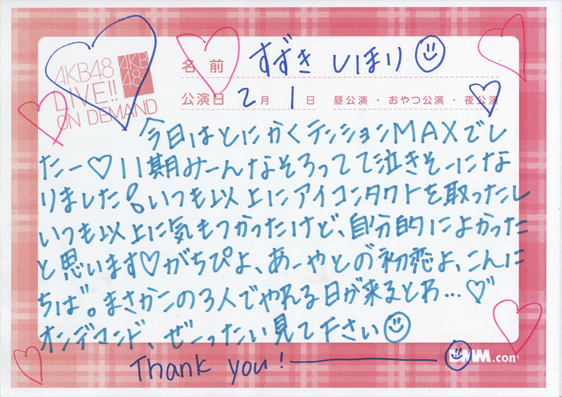 AKB48
LIVE!!
ON DEMAND
AKB48
名前 すずき しほり
公演日 2月 1日 昼公演・おやつ公演・夜公演
今日はとにかくテンションMAXでし
たー♡11期みーんなそろってて泣きそーにな
りました!いつも以上にアイコンタクトを取ったし
いつも以上に気もつかったけど、自分的によかった
と思います♡がちぴよ、あーやとの「初恋よ、こんに
ちは」。まさかこの3人でやれる日が来るとわ…♡
オンデマンド、ぜーったい見て下さい
Thank you!
DMM.com